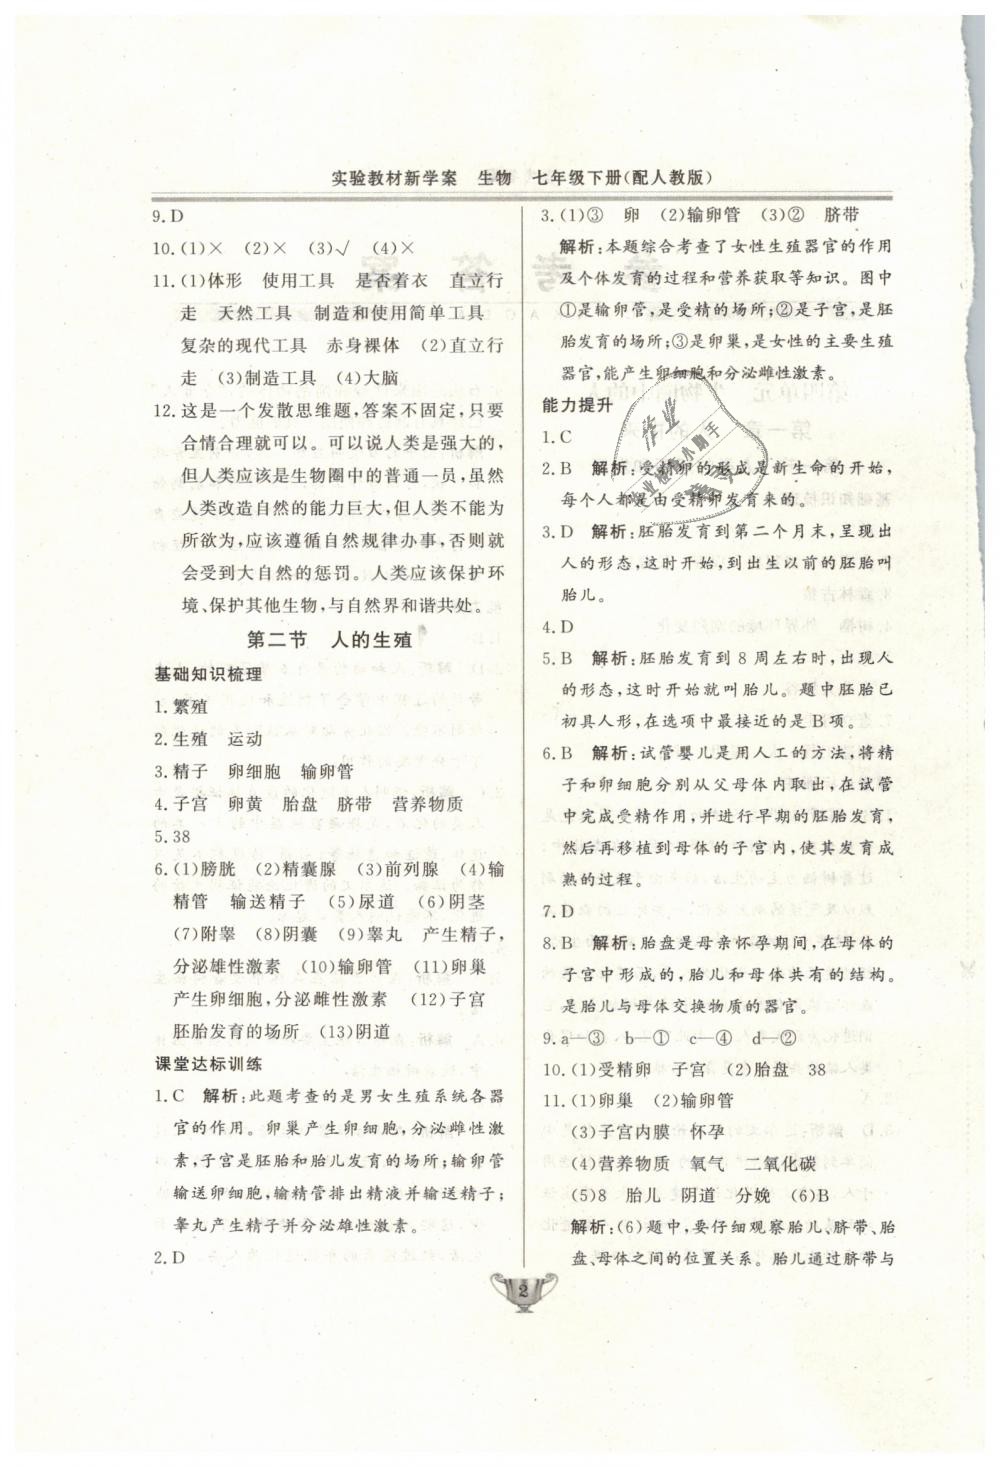 实验教材新学案　生物　七年级下册(配人教版)
9.D
10.(1)×　(2)×　(3)√　(4)×
11.(1)体形　使用工具　是否着衣　直立行
走　天然工具　制造和使用简单工具
复杂的现代工具　赤身裸体　(2)直立行
走　(3)制造工具　(4)大脑
12.这是一个发散思维题,答案不固定,只要
合情合理就可以。可以说人类是强大的,
但人类应该是生物圈中的普通一员,虽然
人类改造自然的能力巨大,但人类不能为
所欲为,应该遵循自然规律办事,否则就
会受到大自然的惩罚。人类应该保护环
境、保护其他生物,与自然界和谐共处。
第二节　人的生殖
基础知识梳理
1.繁殖
2.生殖　运动
3.精子　卵细胞　输卵管
4.子宫　卵黄　胎盘　脐带　营养物质
5.38
6.(1)膀胱　(2)精囊腺　(3)前列腺　(4)输
精管　输送精子　(5)尿道　(6)阴茎
(7)附睾　(8)阴囊　(9)睾丸　产生精子,
分泌雄性激素　(10)输卵管　(11)卵巢
产生卵细胞,分泌雌性激素　(12)子宫
胚胎发育的场所　(13)阴道
课堂达标训练
1.C　解析:此题考查的是男女生殖系统各器
官的作用。卵巢产生卵细胞,分泌雌性激
素,子宫是胚胎和胎儿发育的场所;输卵管
输送卵细胞,输精管排出精液并输送精子;
睾丸产生精子并分泌雄性激素。
2.D
3.(1)③　卵　(2)输卵管　(3)②　脐带
解析:本题综合考查了女性生殖器官的作用
及个体发育的过程和营养获取等知识。图中
①是输卵管,是受精的场所;②是子宫,是胚
胎发育的场所;③是卵巢,是女性的主要生殖
器官,能产生卵细胞和分泌雌性激素。
能力提升
1.C
2.B　解析:受精卵的形成是新生命的开始,
每个人都是由受精卵发育来的。
3.D　解析:胚胎发育到第二个月末,呈现出
人的形态,这时开始,到出生以前的胚胎叫
胎儿。
4.D
5.B　解析:胚胎发育到 8 周左右时,出现人
的形态,这时开始就叫胎儿。题中胚胎已
初具人形,在选项中最接近的是 B 项。
6.B　解析:试管婴儿是用人工的方法,将精
子和卵细胞分别从父母体内取出,在试管
中完成受精作用,并进行早期的胚胎发育,
然后再移植到母体的子宫内,使其发育成
熟的过程。
7.D
8.B　解析:胎盘是母亲怀孕期间,在母体的
子宫中形成的,胎儿和母体共有的结构。
是胎儿与母体交换物质的器官。
9.a—③　b—①　c—④　d—②
10.(1)受精卵　子宫　(2)胎盘　38
11.(1)卵巢　(2)输卵管
(3)子宫内膜　怀孕
(4)营养物质　氧气　二氧化碳
(5)8　胎儿　阴道　分娩　(6)B
解析:(6)题中,要仔细观察胎儿、脐带、胎
盘、母体之间的位置关系。胎儿通过脐带与
2